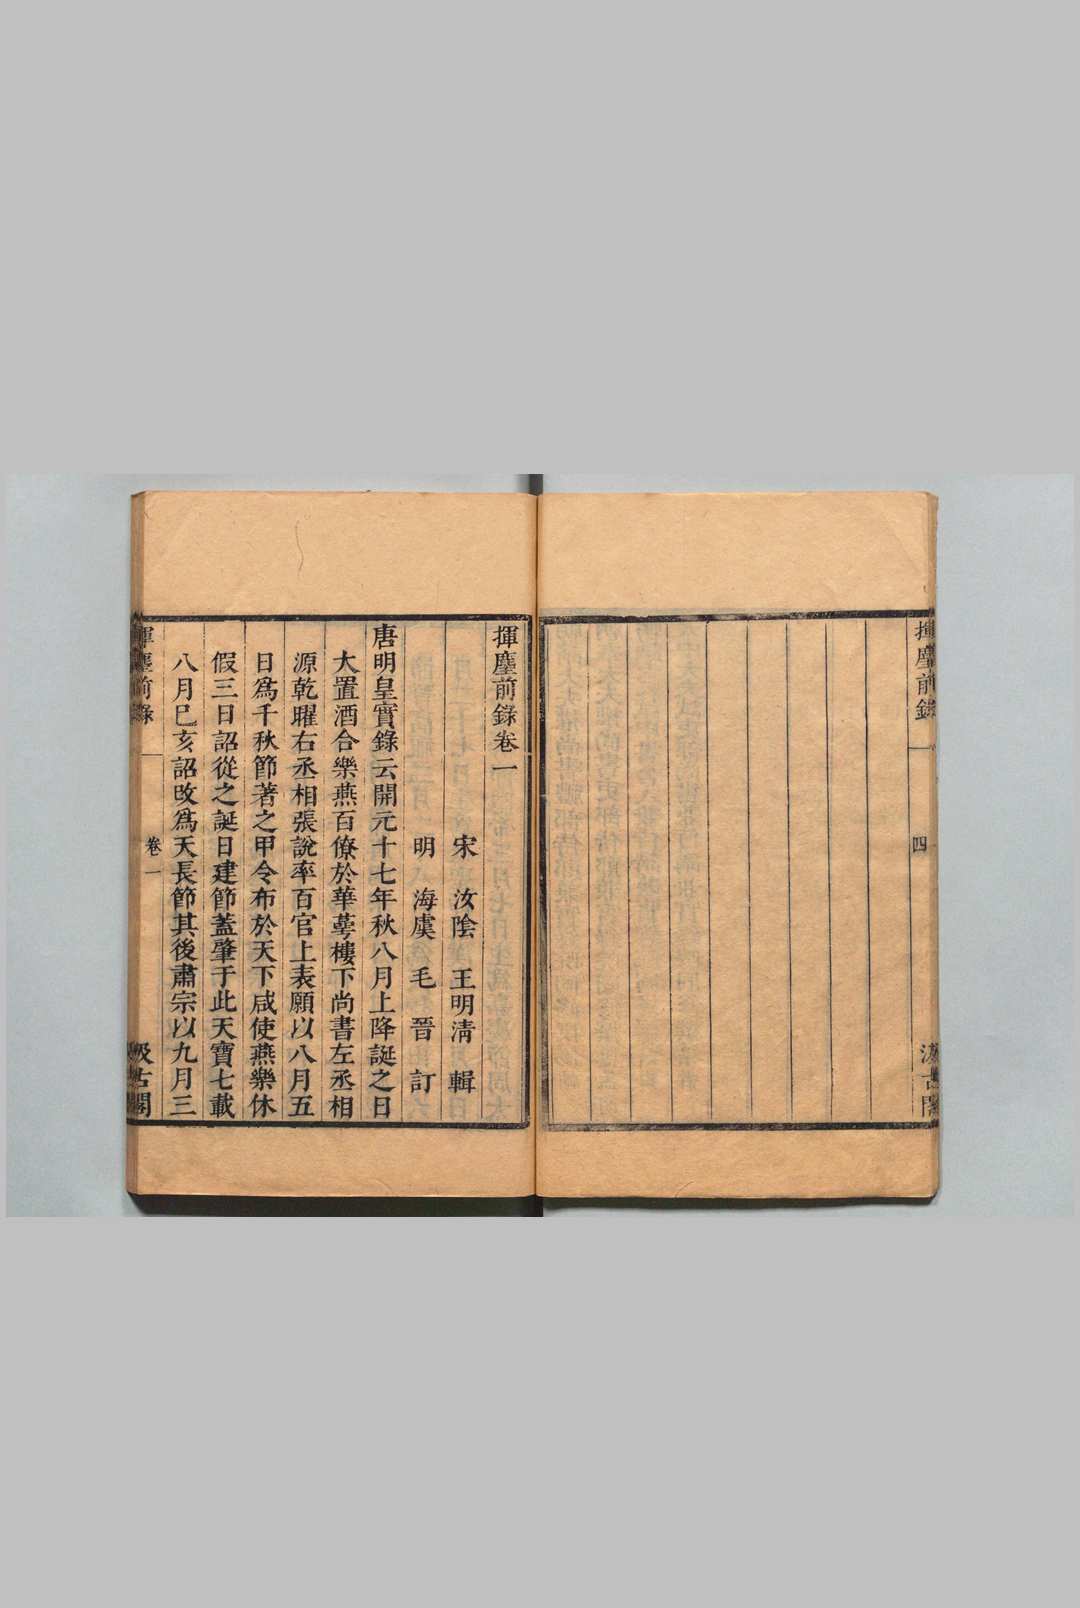 揮麈前錄
四
汲古閣
揮麈前錄卷一
宋 汝陰 王明淸 輯
明 海虞 毛晉 訂
唐明皇實錄云開元十七年秋八月上降誕之日
大置酒合樂燕百僚於華萼樓下尚書左丞相
源乾曜右丞相張說率百官上表願以八月五
日爲千秋節著之甲令布於天下咸使燕樂休
假三日詔從之誕日建節蓋肇于此天寶七載
八月巳亥詔改爲天長節其後肅宗以九月三
揮麈前錄
卷一
汲古閣